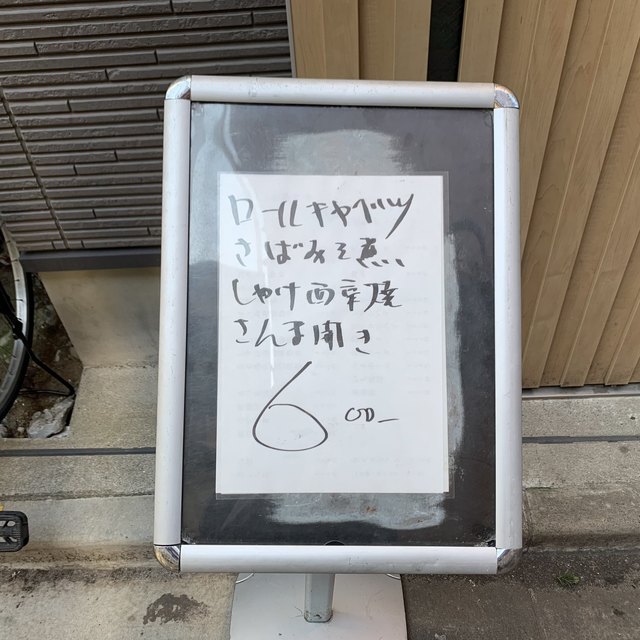 ロールキャベツ
さばみそ煮
しゃけ西京焼
さんま開き
600-